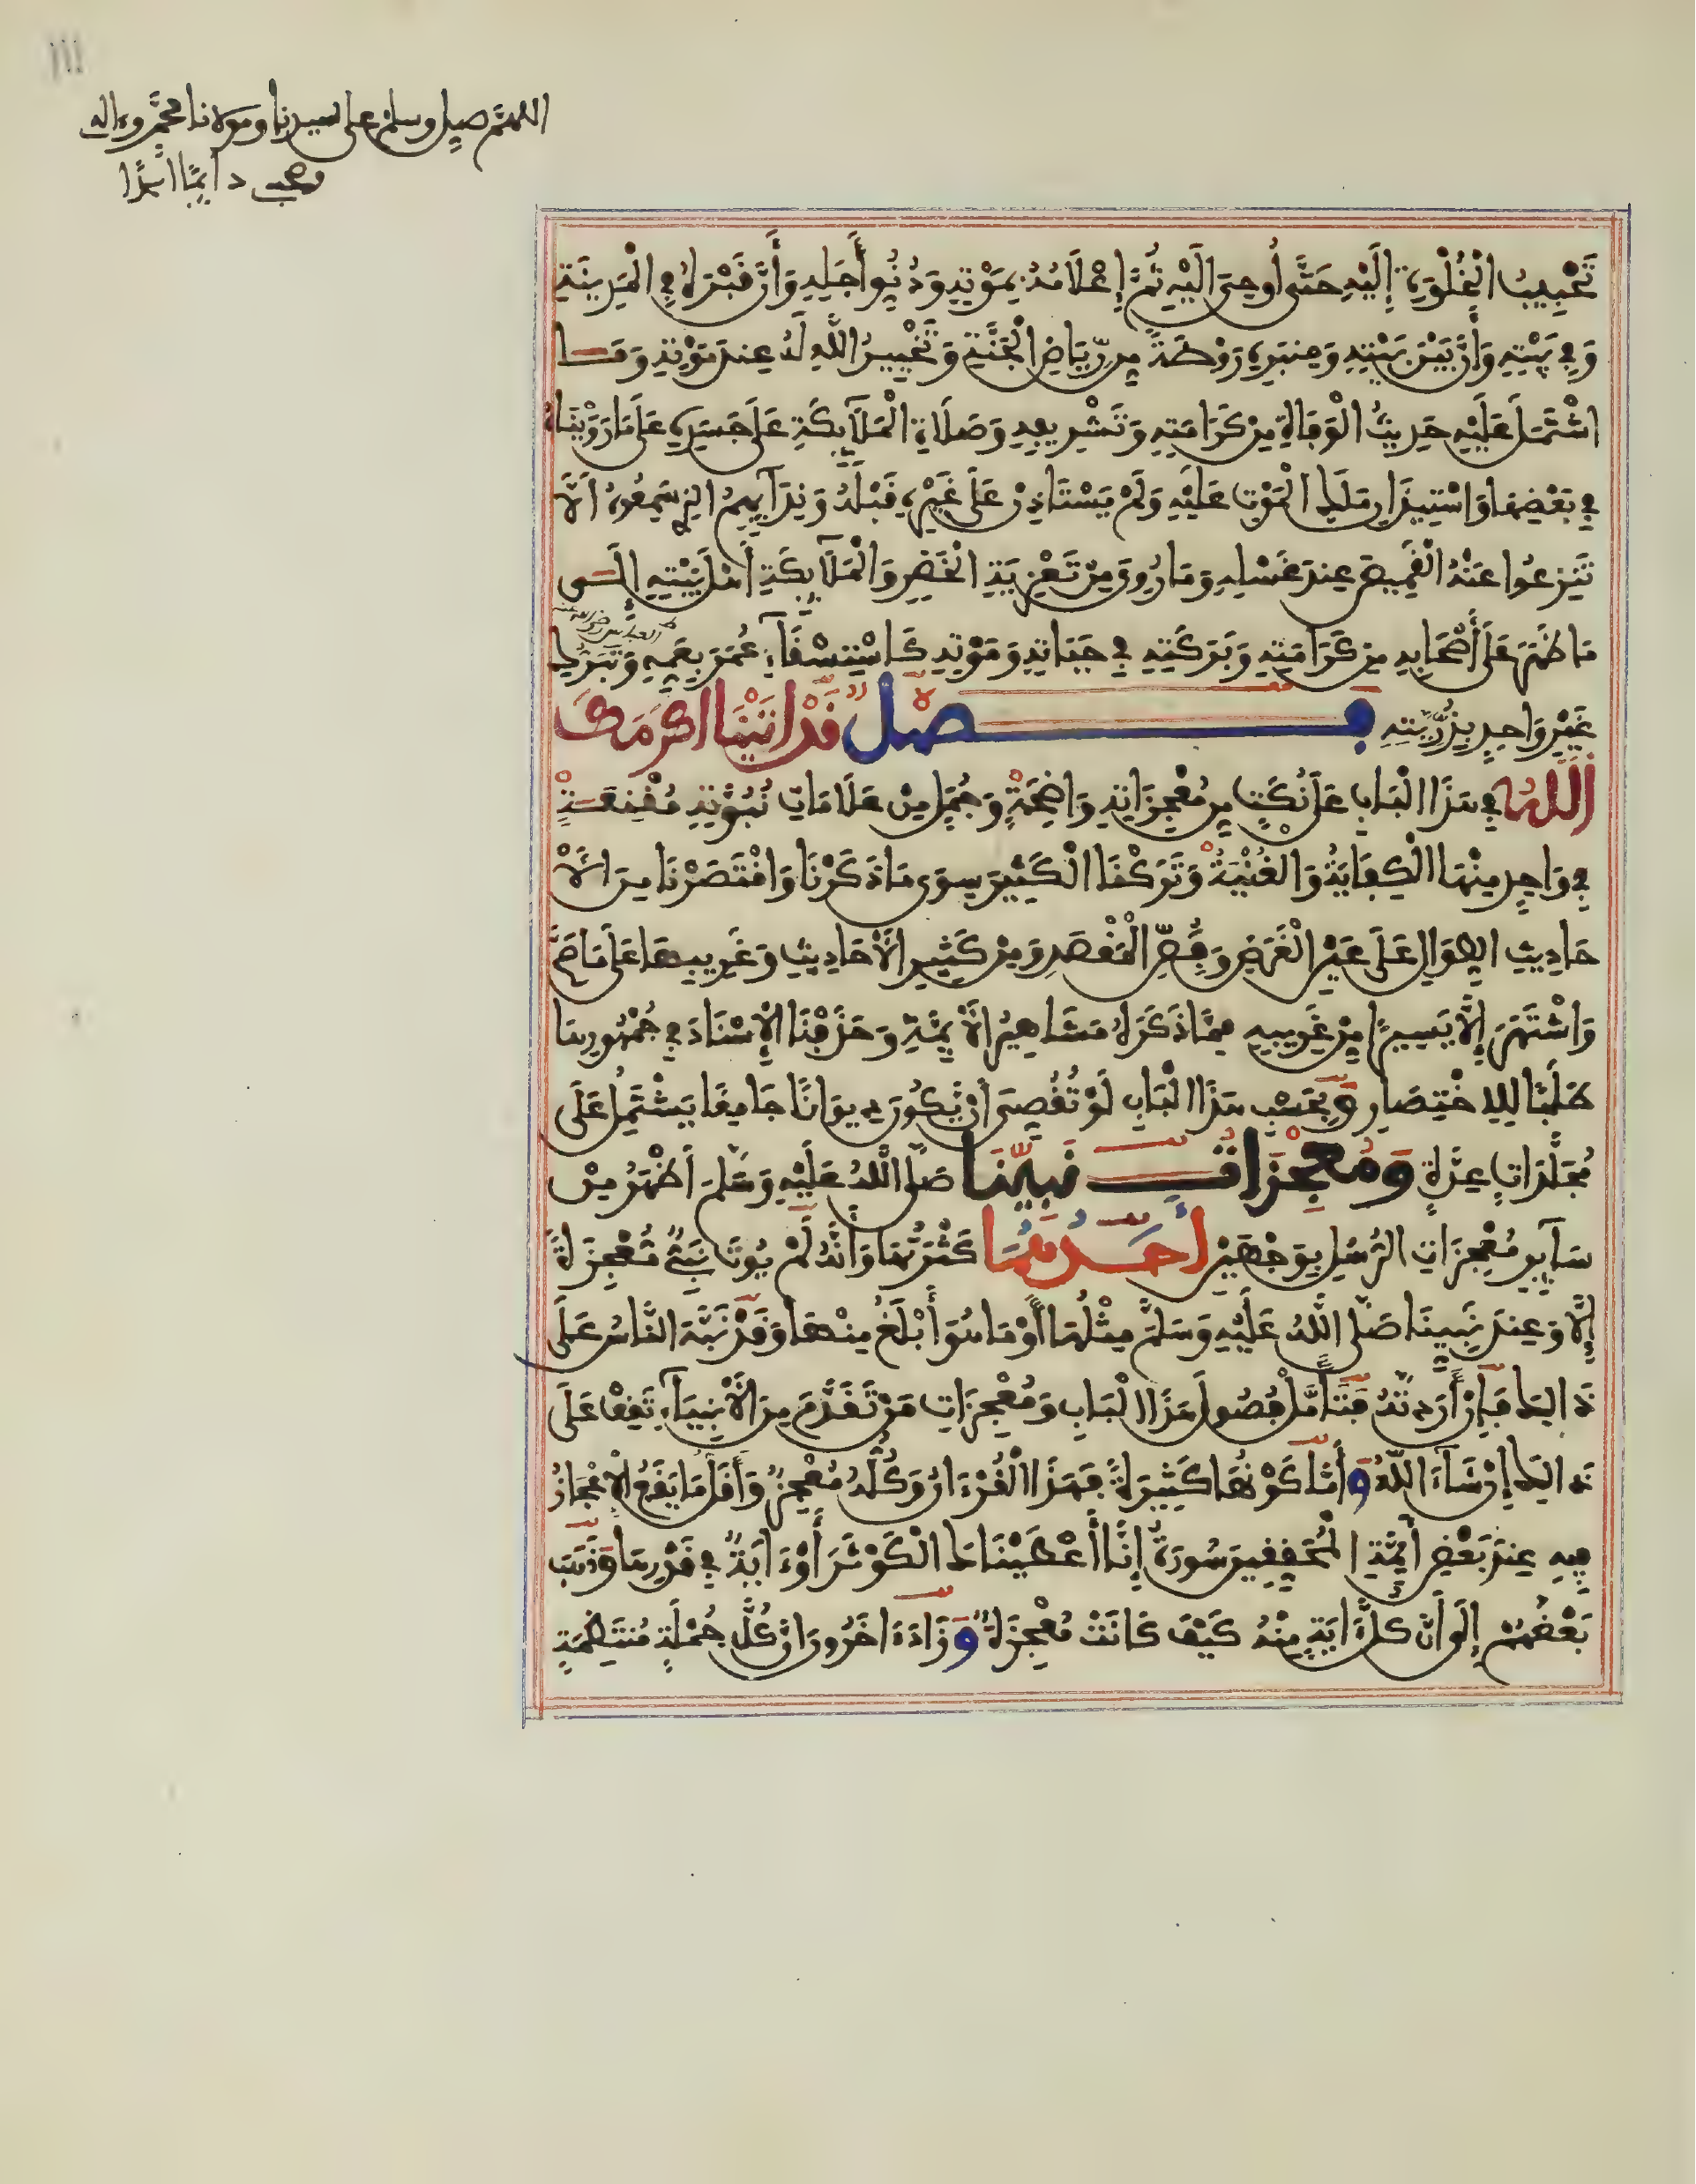 اللهم صل وسلم على سيدنا ومولانا محمد وءاله
وصحبه دائما أبدا
تَحْبِيبُ الْخُلْوَةِ إِلَيْهِ حَتَّى أُوحِيَ إِلَيْهِ ثُمَّ إِعْلَامُهُ بِمَوْتِهِ وَدُنُوِّ أَجَلِهِ وَأَنَّ قَبْرَهُ فِي الْمَدِينَةِ
وَفِي بَيْتِهِ وَأَنَّ بَيْنَ بَيْتِهِ وَمِنْبَرِهِ رَوْضَةً مِن رِّيَاضِ الْجَنَّةِ وَتَخْيِيرُ اللَّهِ لَهُ عِندَ مَوْتِهِ وَمَا
اشْتَمَلَ عَلَيْهِ حَدِيثُ الْوَفَاةِ مِنْ كَرَامَتِهِ وَتَشْرِيفِهِ وَصَلَاةِ الْمَلَآئِكَةِ عَلَى جَسَدِهِ عَلَى مَا رَوَيْنَاهُ
فِي بَعْضِهَا وَاسْتِيذَانِ مَلَكِ الْمَوْتِ عَلَيْهِ وَلَمْ يَسْتَاذِنْ عَلَى غَيْرِهِ قَبْلَهُ وَنِدَآئِهِمُ الذِي سَمِعُوهُ أَلَّا
تَنزِعُوا عَنْهُ الْقَمِيصَ عِندَ غَسْلِهِ وَمَا رُوِيَ مِنْ تَعْزِيَةِ الْخَضِرِ وَالْمَلَآئِكَةِ أَهْلَ بَيْتِهِ إِلَى
مَا ظَهَرَ عَلَى أَصْحَابِهِ مِنْ كَرَامَتِهِ وَبَرَكَتِهِ فِي حَيَاتِهِ وَمَوْتِهِ كَاسْتِسْقَآءِ عُمَرَ بِعَمِّهِ وَتَبَرُّكِ
العباس رضي الله عنه
غَيْرِ وَاحِدٍ بِذُرِّيَّتِهِ فـصل قَدْ أَتَيْنَا أَكْرَمَكَ
اللَّهُ فِي هَذَا الْبَابِ عَلَى نُكَتٍ مِن مُعْجِزَاتِهِ وَاضِحَةٍ وَجُمَلٍ مِنْ عَلَامَاتِ نُبُوَّتِهِ مُقْنِعَةٍ
فِي وَاحِدٍ مِنْهَا الْكِفَايَةُ وَالْغُنْيَةُ وَتَرَكْنَا الْكَثِيرَ سِوَى مَا ذَكَرْنَا وَاقْتَصَرْنَا مِنَ الْأَ
حَادِيثِ الطِّوَالِ عَلَى عَيْنِ الْغَرَضِ وَفَصِّ الْمَقْصَدِ وَمِنْ كَثِيرِ الْأَحَادِيثِ وَغَرِيبِهَا عَلَى مَا صَحَّ
وَاشْتَهَرَ إِلَّا يَسِيرًا مِنْ غَرِيبِهِ مِمَّا ذَكَرَهُ مَشَاهِيرُ الْأَئِمَّةِ وَحَذَفْنَا الْإِسْنَادَ فِي جُمْهُورِهَا
طَلَبًا لِلِاخْتِصَارِ وَبِحَسْبِ هَذَا الْبَابِ لَوْ تُقُصِّيَ أَنْ يَكُونَ دِيوَانًا جَامِعًا يَشْتَمِلُ عَلَى
مُجَلَّدَاتٍ عِدَّةٍ وَمُعْجِزَاتُ نَبِيِّنَا صَلَّى اللَّهُ عَلَيْهِ وَسَلَّمَ أَظْهَرُ مِنْ
سَآئِرِ مُعْجِزَاتِ الرُّسُلِ بِوَجْهَيْنِ أَحَدُهُمَا كَثْرَتُهَا وَأَنَّهُ لَمْ يُوتَ نَبِيٌّ مُعْجِزَةً
إِلَّا وَعِندَ نَبِيِّنَا صَلَّى اللَّهُ عَلَيْهِ وَسَلَّمَ مِثْلُهَا أَوْ مَا هُوَ أَبْلَغُ مِنْهَا وَقَدْ نَبَّهَ النَّاسُ عَلَى
ذَالِكَ فَإِنْ أَرَدتَّهُ فَتَأَمَّلْ فُصُولَ هَذَا الْبَابِ وَمُعْجِزَاتِ مَنْ تَقَدَّمَ مِنَ الْأَنْبِيَآءِ تَقِفْ عَلَى
ذَالِكَ إِنْ شَآءَ اللَّهُ وَأَمَّا كَوْنُهَا كَثِيرَةً فَهَذَا الْقُرْءَانُ وَكُلُّهُ مُعْجِزٌ وَأَقَلُّ مَا يَقَعُ الْإِعْجَازُ
فِيهِ عِندَ بَعْضِ أَئِمَّةِ الْمُحَقِّقِينَ سُورَةُ إِنَّا أَعْطَيْنَاكَ الْكَوْثَرَ أَوْ ءَايَةٌ فِي قَدْرِهَا وَذَهَبَ
بَعْضُهُمْ إِلَى أَنَّ كُلَّ ءَايَةٍ مِنْهُ كَيْفَ كَانَتْ مُعْجِزَةٌ وَزَادَ ءَاخَرُونَ أَنَّ كُلَّ جُمْلَةٍ مُنتَظِمَةٍ